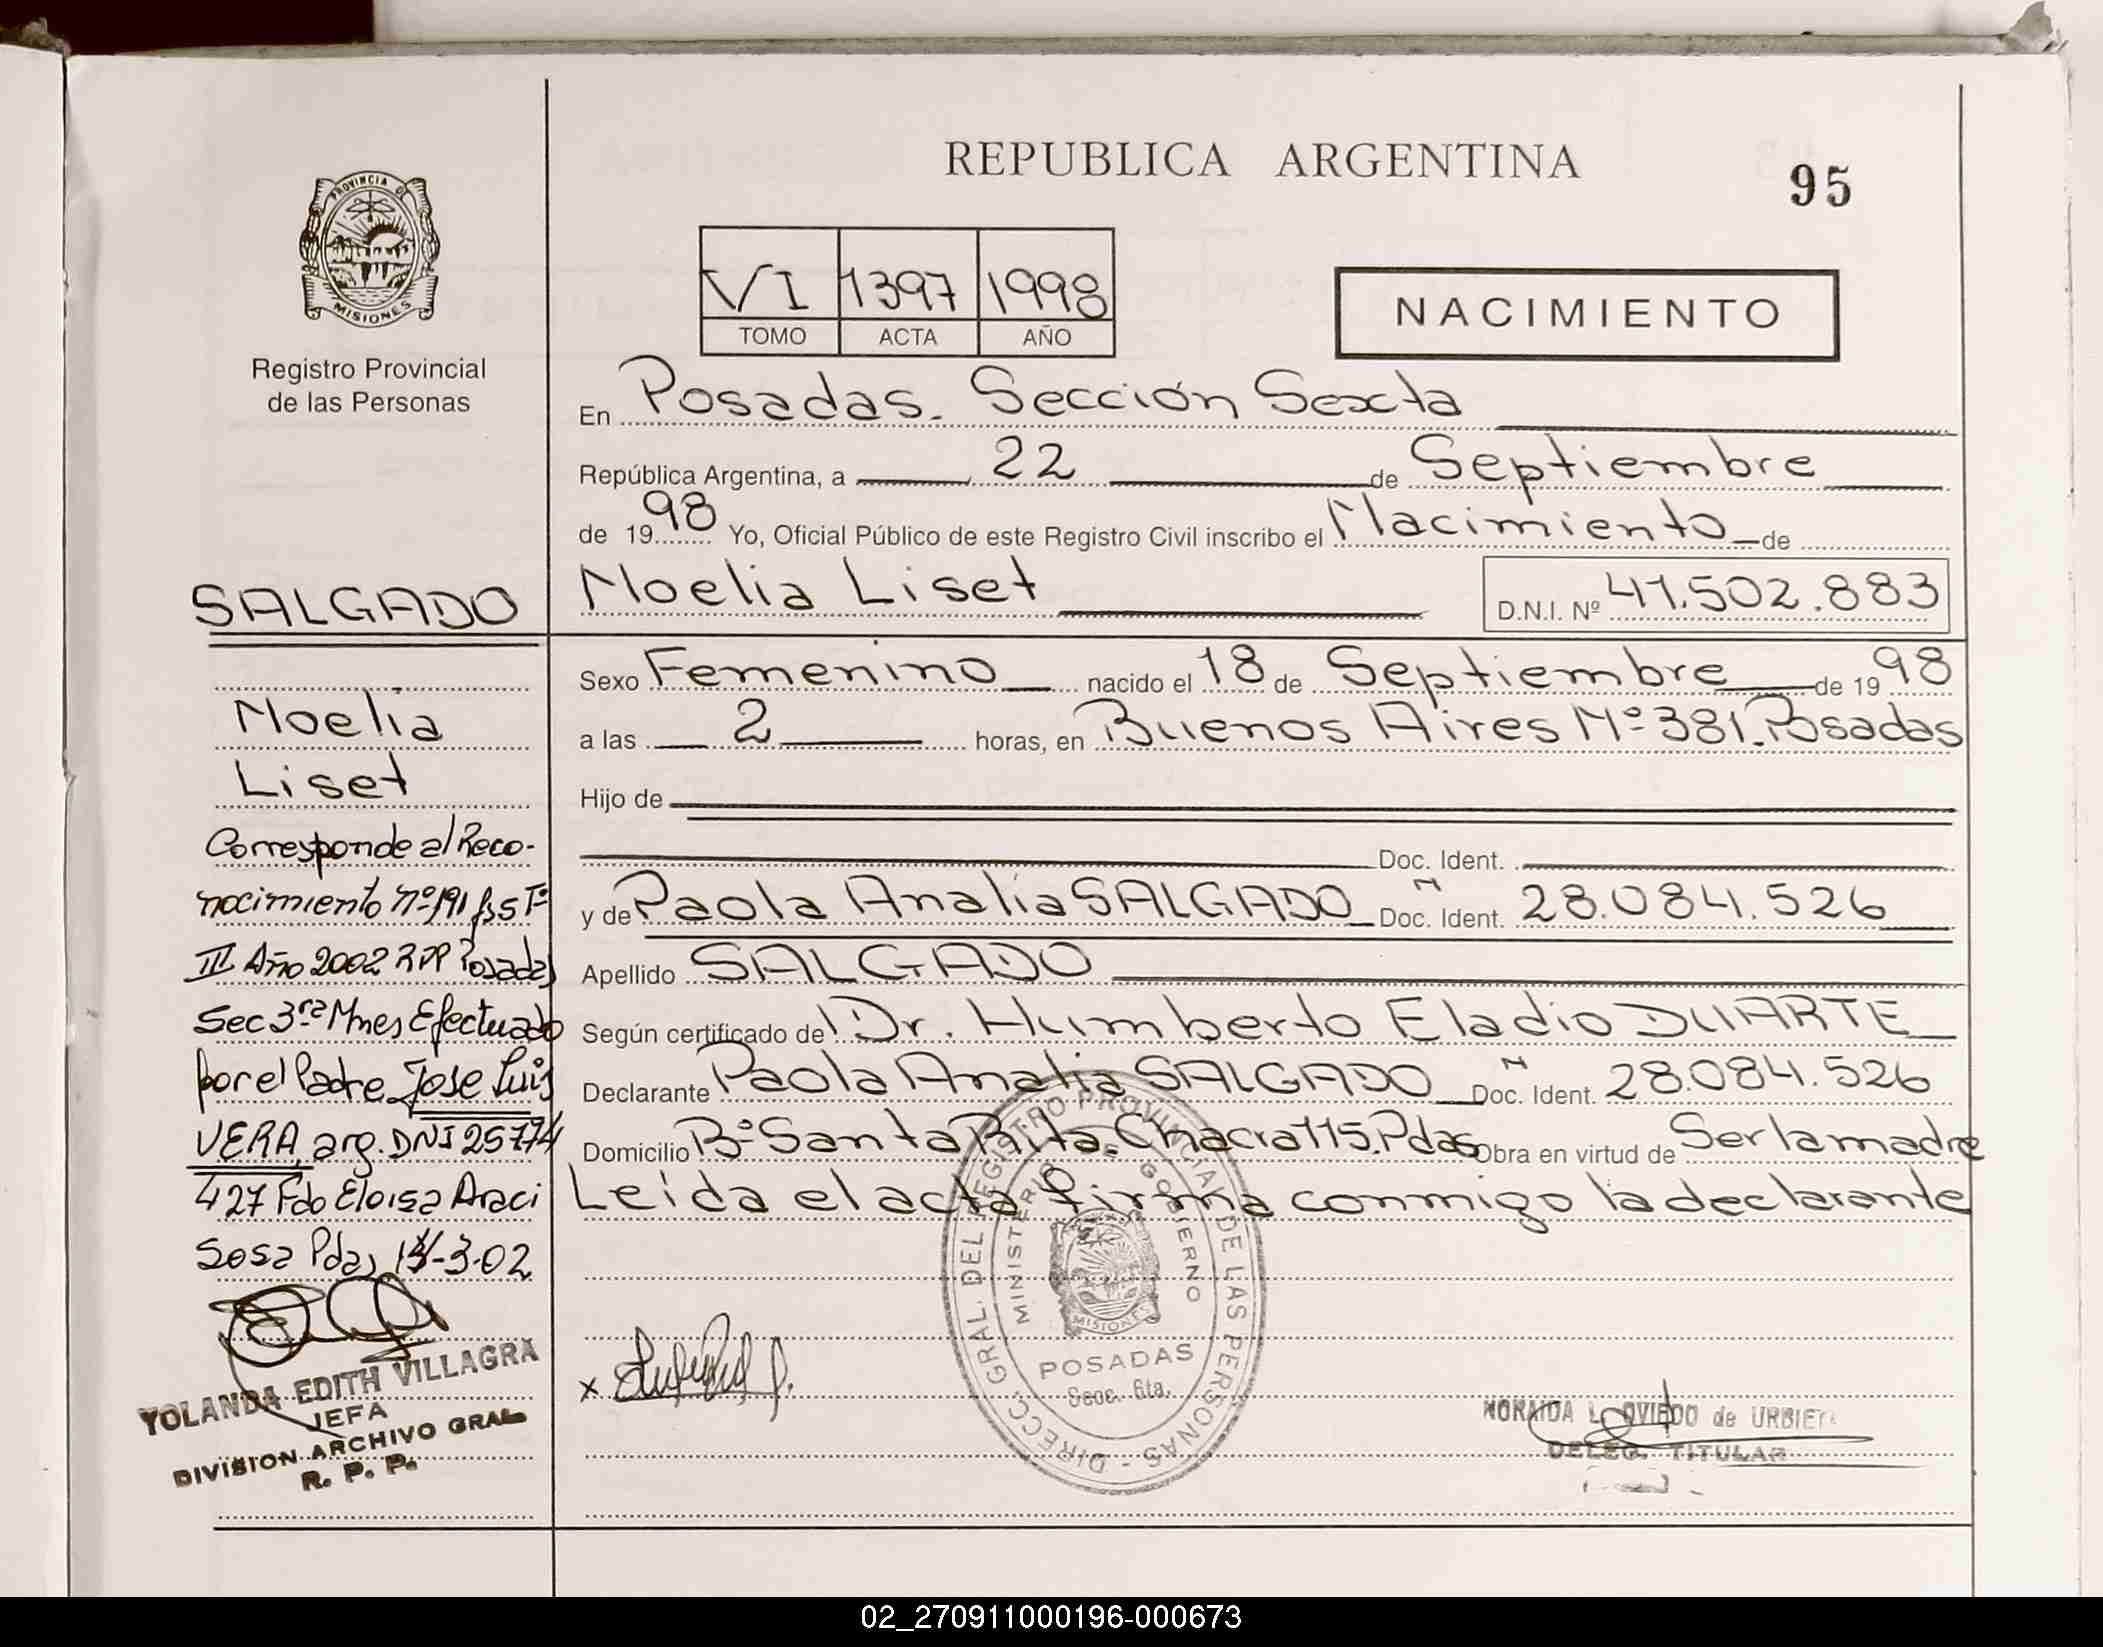 REPUBLICA ARGENTINA
95
PROVINCIA DE
MISIONES
Registro Provincial
de las Personas
VI 1397 1998
TOMO ACTA AÑO
NACIMIENTO
En Posadas. Sección Sexta
República Argentina, a 22 de Septiembre
de 1998 Yo, Oficial Público de este Registro Civil inscribo el Nacimiento de
Noelia Liset D.N.I. Nº 41.502.883
Sexo Femenino nacido el 18 de Septiembre de 1998
a las 2 horas, en Buenos Aires Nº 381. Posadas
Hijo de
Doc. Ident.
y de Paola Analia SALGADO Doc. Ident. 28.084.526
Apellido SALGADO
Según certificado de Dr. Humberto Eladio DUARTE
Declarante Paola Analia SALGADO Doc. Ident. 28.084.526
Domicilio Bº Santa Rita. Chacra 115. Pdas Obra en virtud de Ser la madre
Leída el acta firma conmigo la declarante
SALGADO
Noelia
Liset
Corresponde al Reco-
nocimiento Nº 191 fs 5 Tº
III Año 2002 RPP Posadas
Sec 3ra Mnes Efectuado
por el Padre Jose Luis
VERA, arg. DNI 25774
427 Fdo Eloisa Araci
Sosa Pdas -3-02
YOLANDA EDITH VILLAGRA
JEFA
DIVISION ARCHIVO GRAL
R. P. P.
DIRECC. GRAL. DEL REGISTRO PROVINCIAL DE LAS PERSONAS
MINISTERIO DE GOBIERNO
MISIONES
POSADAS
Secc. 6ta.
x
NORAIDA L. OVIEDO de URBIET
DELEG. TITULAR
02_270911000196-000673